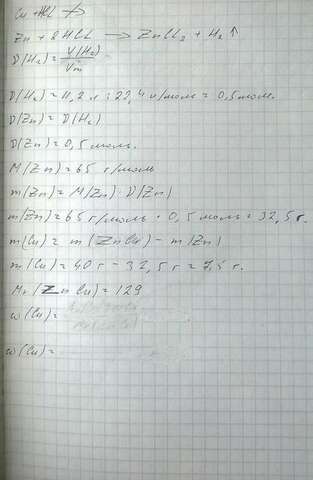 Cu + HCl ↛
Zn + 2HCl → ZnCl₂ + H₂ ↑
D(H₂) = V(H₂) / Vm
D(H₂) = 11,2 л : 22,4 л/моль = 0,5 моль.
D(Zn) = D(H₂)
D(Zn) = 0,5 моль.
M(Zn) = 65 г/моль
m(Zn) = M(Zn) · D(Zn)
m(Zn) = 65 г/моль · 0,5 моль = 32,5 г.
m(Cu) = m(ZnCu) - m(Zn)
m(Cu) = 40 г - 32,5 г = 7,5 г.
Mr(ZnCu) = 129
w(Cu) =
w(Cu) =